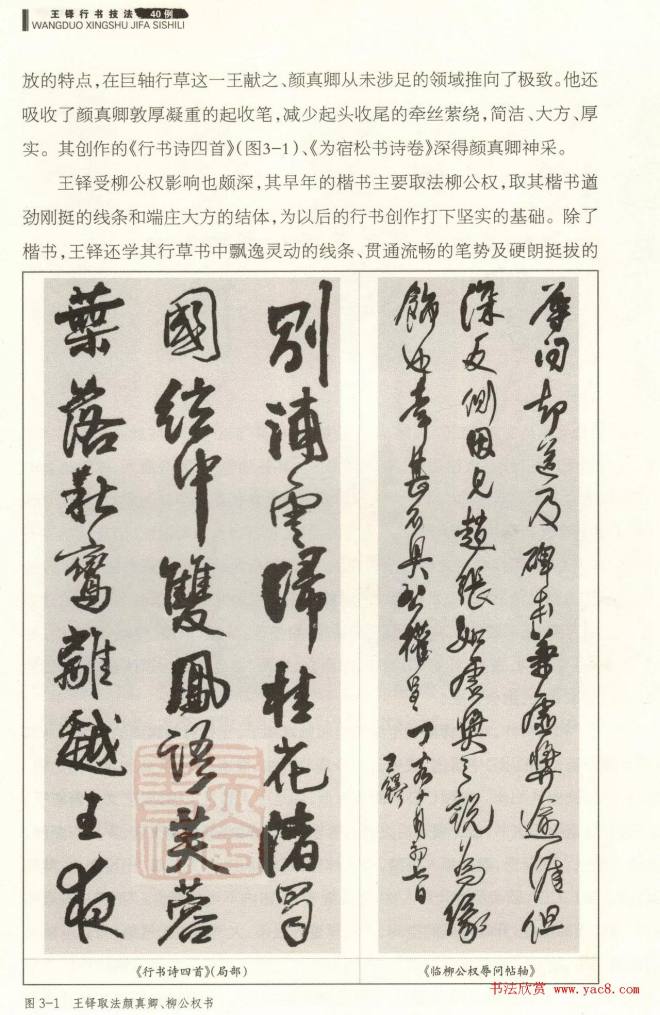 王铎行书技法 40例
WANGDUO XINGSHU JIFA SISHILI
放的特点，在巨轴行草这一王献之、颜真卿从未涉足的领域推向了极致。他还
吸收了颜真卿敦厚凝重的起收笔，减少起头收尾的牵丝萦绕，简洁、大方、厚
实。其创作的《行书诗四首》（图3-1）、《为宿松书诗卷》深得颜真卿神采。
王铎受柳公权影响也颇深，其早年的楷书主要取法柳公权，取其楷书遒
劲刚挺的线条和端庄大方的结体，为以后的行书创作打下坚实的基础。除了
楷书，王铎还学其行草书中飘逸灵动的线条、贯通流畅的笔势及硬朗挺拔的
別浦雲歸桂花渚蜀
國絃中雙鳳語芙蓉
葉落秋鸞離越王夜
辱问却送及碑本兼虛獎逾涯但
深反側因見趙張如虛獎之說為緣
飾也幸甚不具公權呈 丁亥十月初七日
王鐸
《行书诗四首》（局部）
《临柳公权辱问帖轴》
图 3-1 王铎取法颜真卿、柳公权书
书法欣赏 www.yac8.com